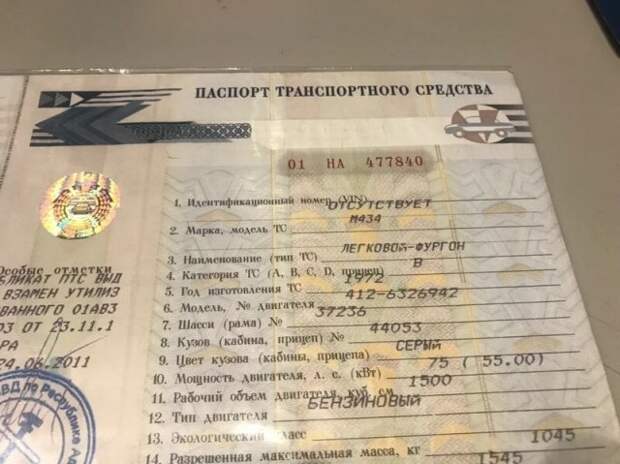 ПАСПОРТ ТРАНСПОРТНОГО СРЕДСТВА
01 НА 477840
1. Идентификационный номер (VIN) ОТСУТСТВУЕТ
2. Марка, модель ТС М434
3. Наименование (тип ТС) ЛЕГКОВОЙ-ФУРГОН
4. Категория ТС (А, В, С, D, прицеп) В
5. Год изготовления ТС 1972
6. Модель, № двигателя 412-6326942
7. Шасси (рама) № 37236
8. Кузов (кабина, прицеп) № 44053
9. Цвет кузова (кабины, прицепа) СЕРЫЙ
10. Мощность двигателя, л. с. (кВт) 75 ( 55.00)
11. Рабочий объем двигателя, куб. см 1500
12. Тип двигателя БЕНЗИНОВЫЙ
13. Экологический класс
14. Разрешенная максимальная масса, кг 1045
1545
Особые отметки
БЛИКАТ ПТС ВЫД
ВЗАМЕН УТИЛИЗ
ВАННОГО 01АВ3
03 ОТ 23.11.1
РА
24.06.2011
ВД по Республике Ад